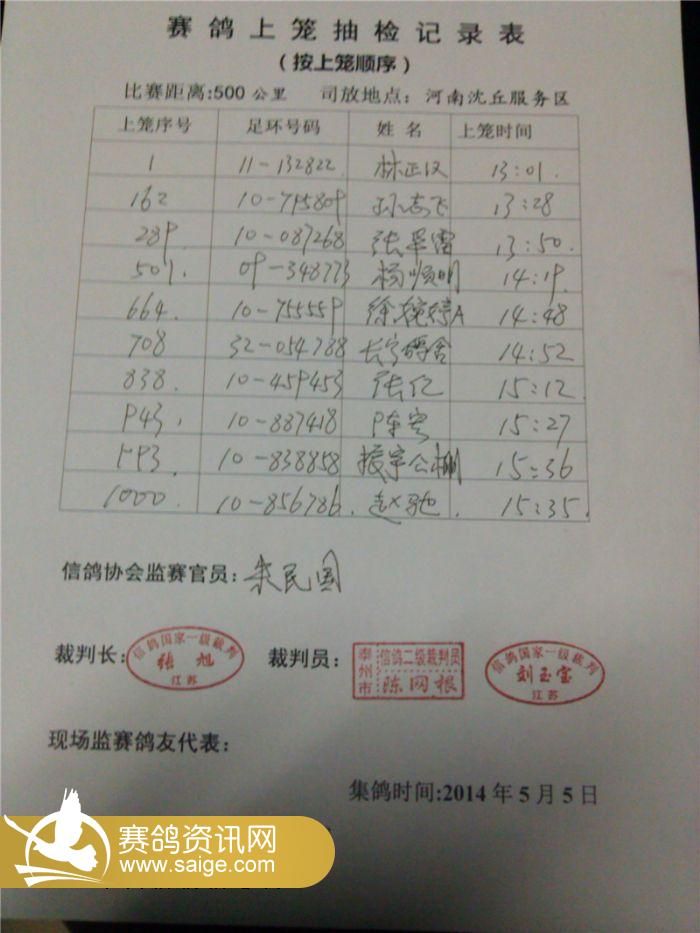 赛鸽上笼抽检记录表
（按上笼顺序）
比赛距离:500公里 司放地点：河南沈丘服务区
上笼序号 足环号码 姓名 上笼时间
1 11-132822 林正汉 13:01
162 10-715809 孙志飞 13:28
289 10-087268 13:50
501 09-348773 杨顺明 14:19
664 10-755559 14:48
708 32-054788 14:52
838 10-459453 张亿 15:12
943 10-887418 15:27
993 10-838858 振宇公棚 15:36
1000 10-856786 赵驰 15:35
信鸽协会监赛官员：朱民国
裁判长： 信鸽国家一级裁判 张旭 江苏 裁判员： 泰州市 信鸽二级裁判员 陈网根 信鸽国家一级裁判 刘玉宝 江苏
现场监赛鸽友代表：
集鸽时间:2014年5月5日
赛鸽资讯网
www.saige.com